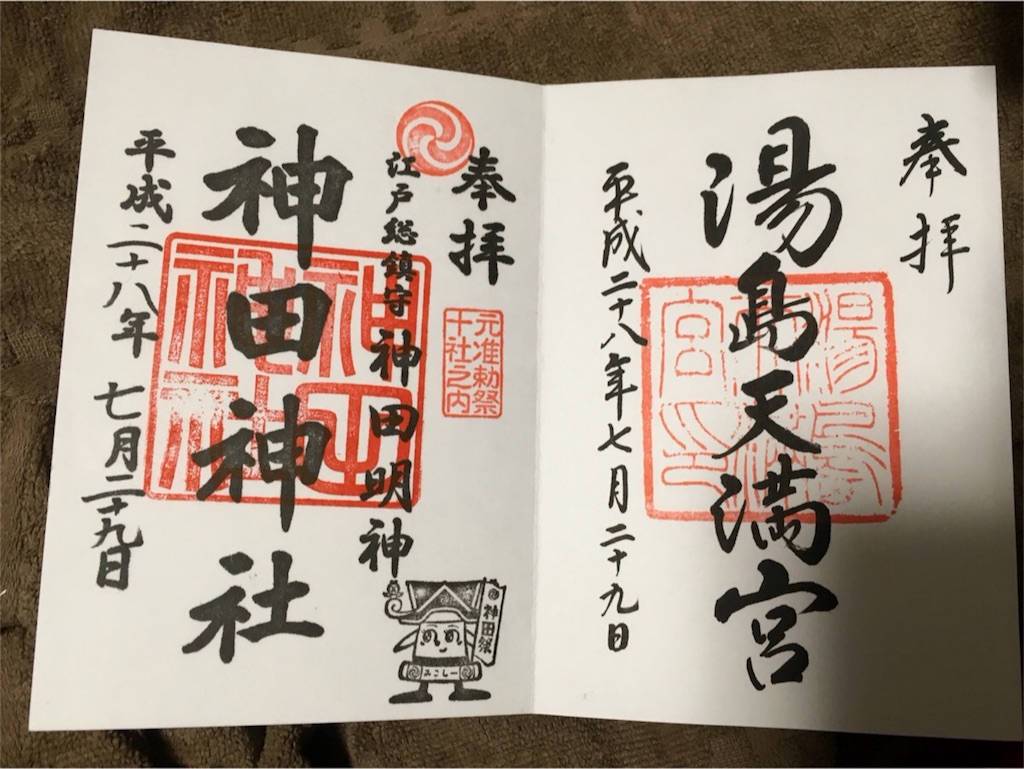 奉拝
湯島天満宮
湯島天満宮印
平成二十八年七月二十九日
奉拝
元准勅祭
十社之内
江戸総鎮守
神田明神
神田神社
神田神社
平成二十八年 七月二十九日
神田祭
みこしー